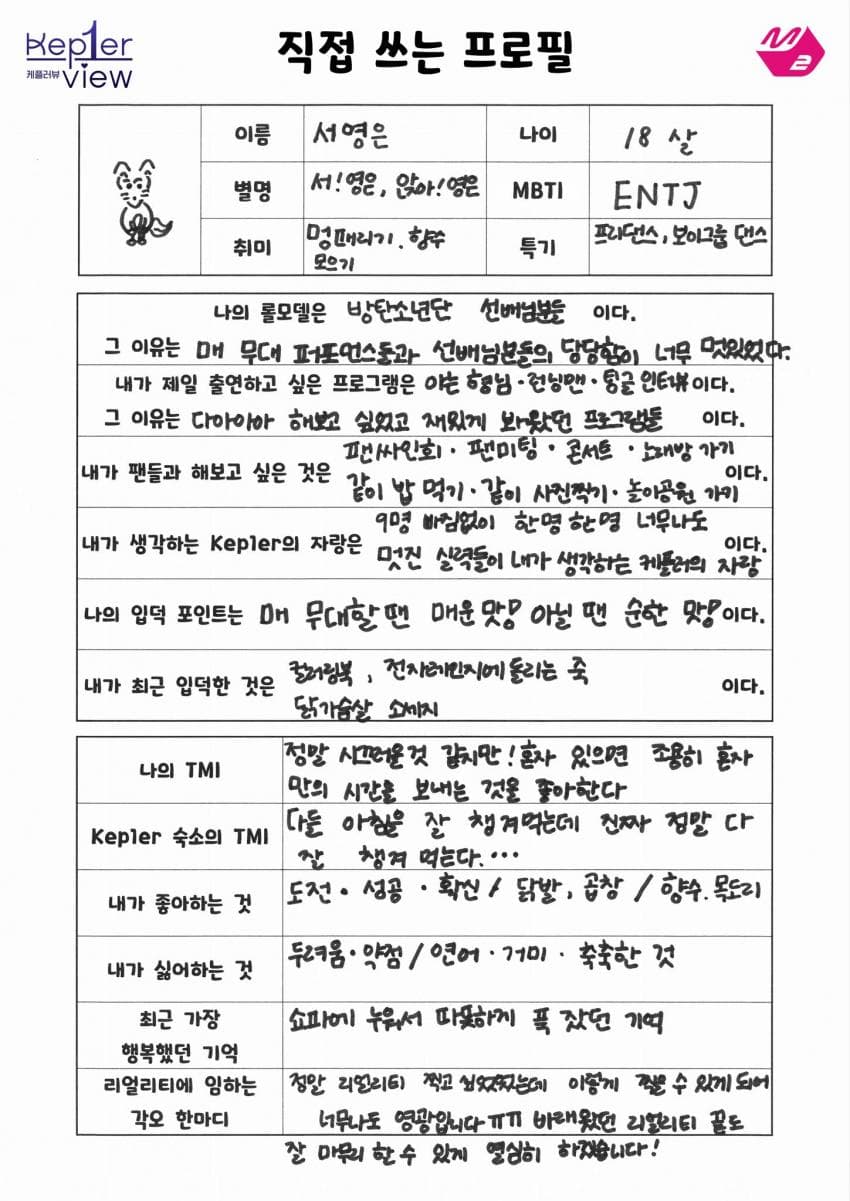 Kep1er
케플러뷰 view
직접 쓰는 프로필
M2
이름 서영은 나이 18 살
별명 서!영은, 앉아!영은 MBTI ENTJ
취미 멍때리기. 향수 특기 프리댄스, 보이그룹 댄스
모으기
나의 롤모델은 방탄소년단 선배님분들 이다.
그 이유는 매 무대 퍼포먼스들과 선배님분들의 당당함이 너무 멋있었다.
내가 제일 출연하고 싶은 프로그램은 아는 형님·런닝맨·통글인터뷰이다.
그 이유는 다아아아 해보고 싶었고 재밌게 봐왔던 프로그램들 이다.
팬싸인회· 팬미팅· 콘서트· 노래방 가기
내가 팬들과 해보고 싶은 것은 이다.
같이 밥 먹기·같이 사진찍기·놀이공원 가기
9명 빠짐없이 한명한명 너무나도
내가 생각하는 Kep1er의 자랑은 이다.
멋진 실력들이 내가 생각하는 케플러의 자랑
나의 입덕 포인트는 매 무대할 땐 매운맛! 아닐 땐 순한 맛!이다.
컬러링북, 전자레인지에 돌리는 죽
내가 최근 입덕한 것은 이다.
닭가슴살 소세지
나의 TMI 정말 시끄러운것 같지만! 혼자 있으면 조용히 혼자
만의 시간을 보내는 것을 좋아한다
Kep1er 숙소의 TMI 다들 아침을 잘 챙겨먹는데 진짜 정말 다
잘 챙겨 먹는다.···
내가 좋아하는 것 도전· 성공 · 확신 / 닭발, 곱창 / 향수. 목도리
내가 싫어하는 것 두려움·약점 / 연어·거미· 축축한 것
최근 가장 쇼파에 누워서 따뜻하게 푹 잤던 기억
행복했던 기억
리얼리티에 임하는 정말 리얼리티 찍고 싶었었는데 이렇게 찍을 수 있게 되어
각오 한마디 너무나도 영광입니다ㅠㅠ 바래왔던 리얼리티 끝도
잘 마무리 할 수 있게 열심히 하겠습니다!